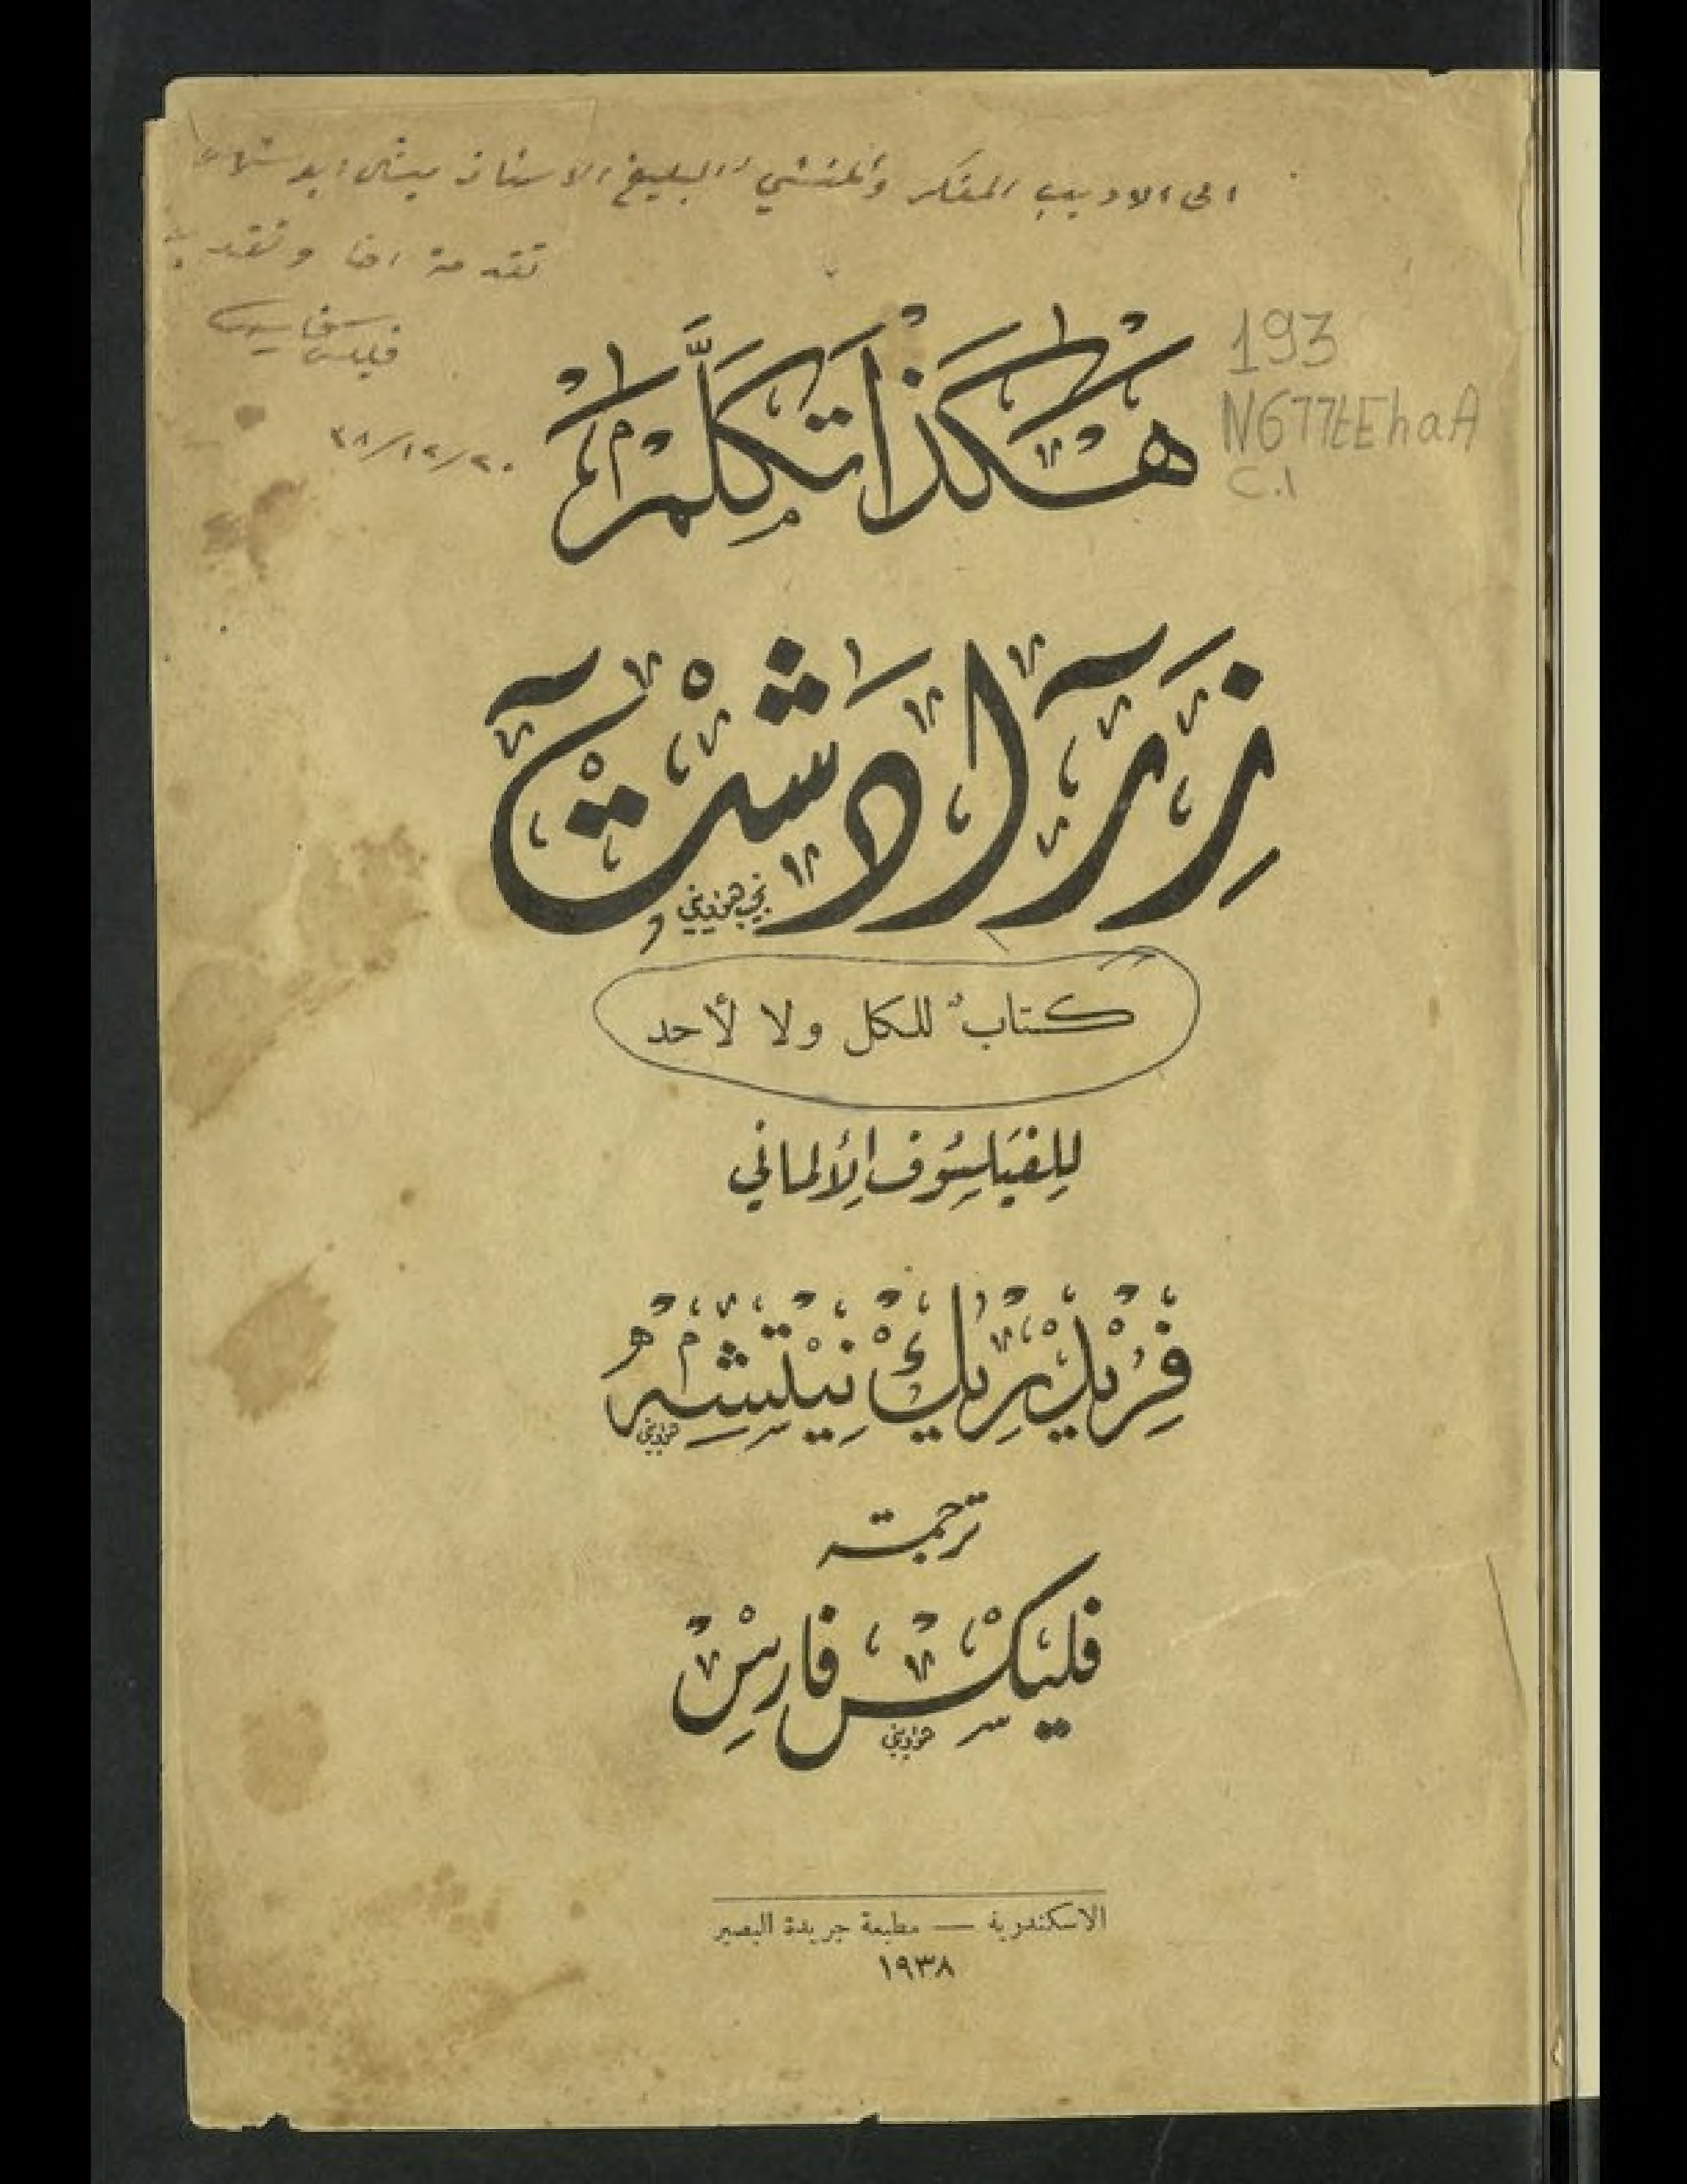 الى الاديب المفكر والمنشي البليغ الاستاذ ميشال ابو شهلا
تقدمة اخا وتقدير
فليكس فارس
٢٠/١٢/٣٨
193
N677tEhaA
C.1
هٰكَذَا تَكَلَّمَ
زَرَادَشْت
نجيب هواويني
كتابٌ للكل ولا لأحد
لِلفَيلسُوف الأَلماني
فِرِيْدْرِيكْ نِيْتْشِهْ
هواويني
ترجمة
فليكس فارس
هواويني
الاسكندرية — مطبعة جريدة البصير
١٩٣٨